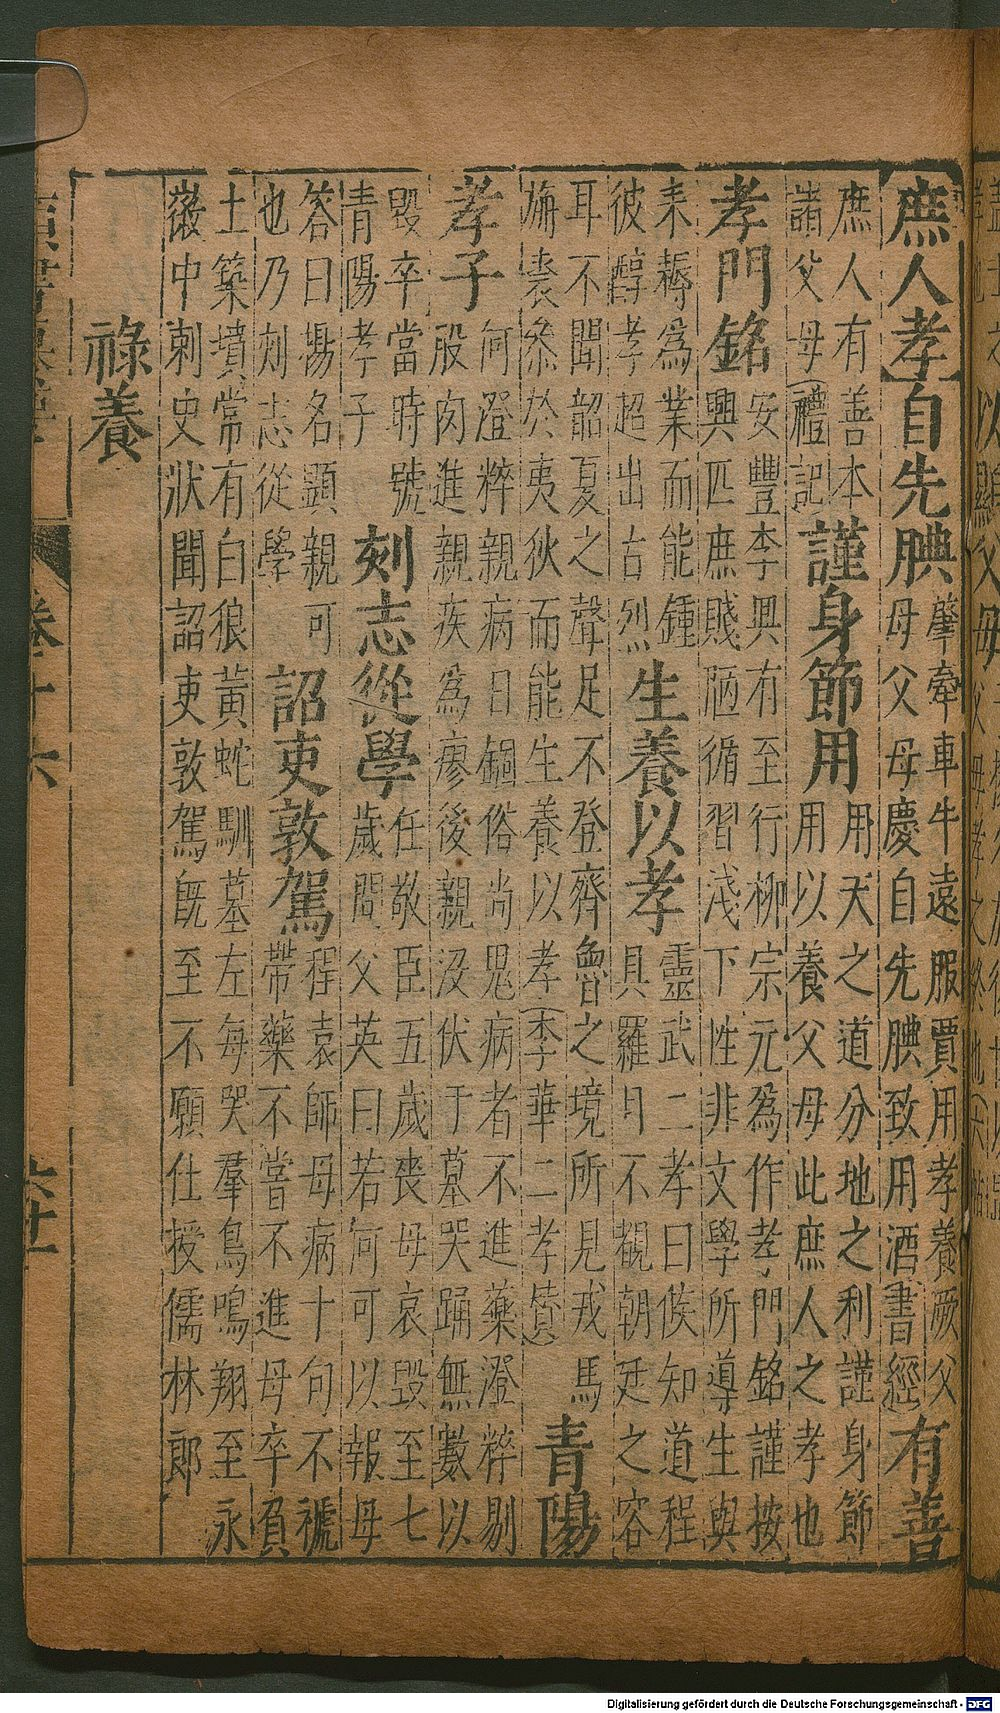 庶人孝自先腆
肇牽車牛遠服賈用孝養厥父
母父母慶自先腆致用酒書經
有善
庶人有善本
諸父母禮記
謹身節用
用天之道分地之利謹身節
用以養父母此庶人之孝也
孝門銘
安豐李興有至行柳宗元為作孝門銘謹按
興匹庶賤陋循習淺下性非文學所導生與
耒耨為業而能鍾
彼醇孝超出古烈
生養以孝
靈武二孝曰侯知道程
具羅日不覩朝廷之容
耳不聞韶夏之聲足不登齊魯之境所見戎馬
旃裘叅於夷狄而能生養以孝李華二孝贊
青陽
孝子
何澄粹親病日錮俗尚鬼病者不進藥澄粹剔
股肉進親疾為瘳後親没伏于墓哭踊無數以
毀卒當時號
青陽孝子
刻志從學
任敬臣五歲喪母哀毀至七
歲問父英曰若何可以報母
答曰揚名顯親可
也乃刻志從學
詔吏敦駕
程袁師母病十旬不褫
帶藥不嘗不進母卒負
土築墳常有白狼黃蛇馴墓左每哭羣鳥鳴翔至永
徽中刺史狀聞詔吏敦駕既至不願仕授儒林郎
祿養
卷十六
六十一
Digitalisierung gefördert durch die Deutsche Forschungsgemeinschaft - DFG